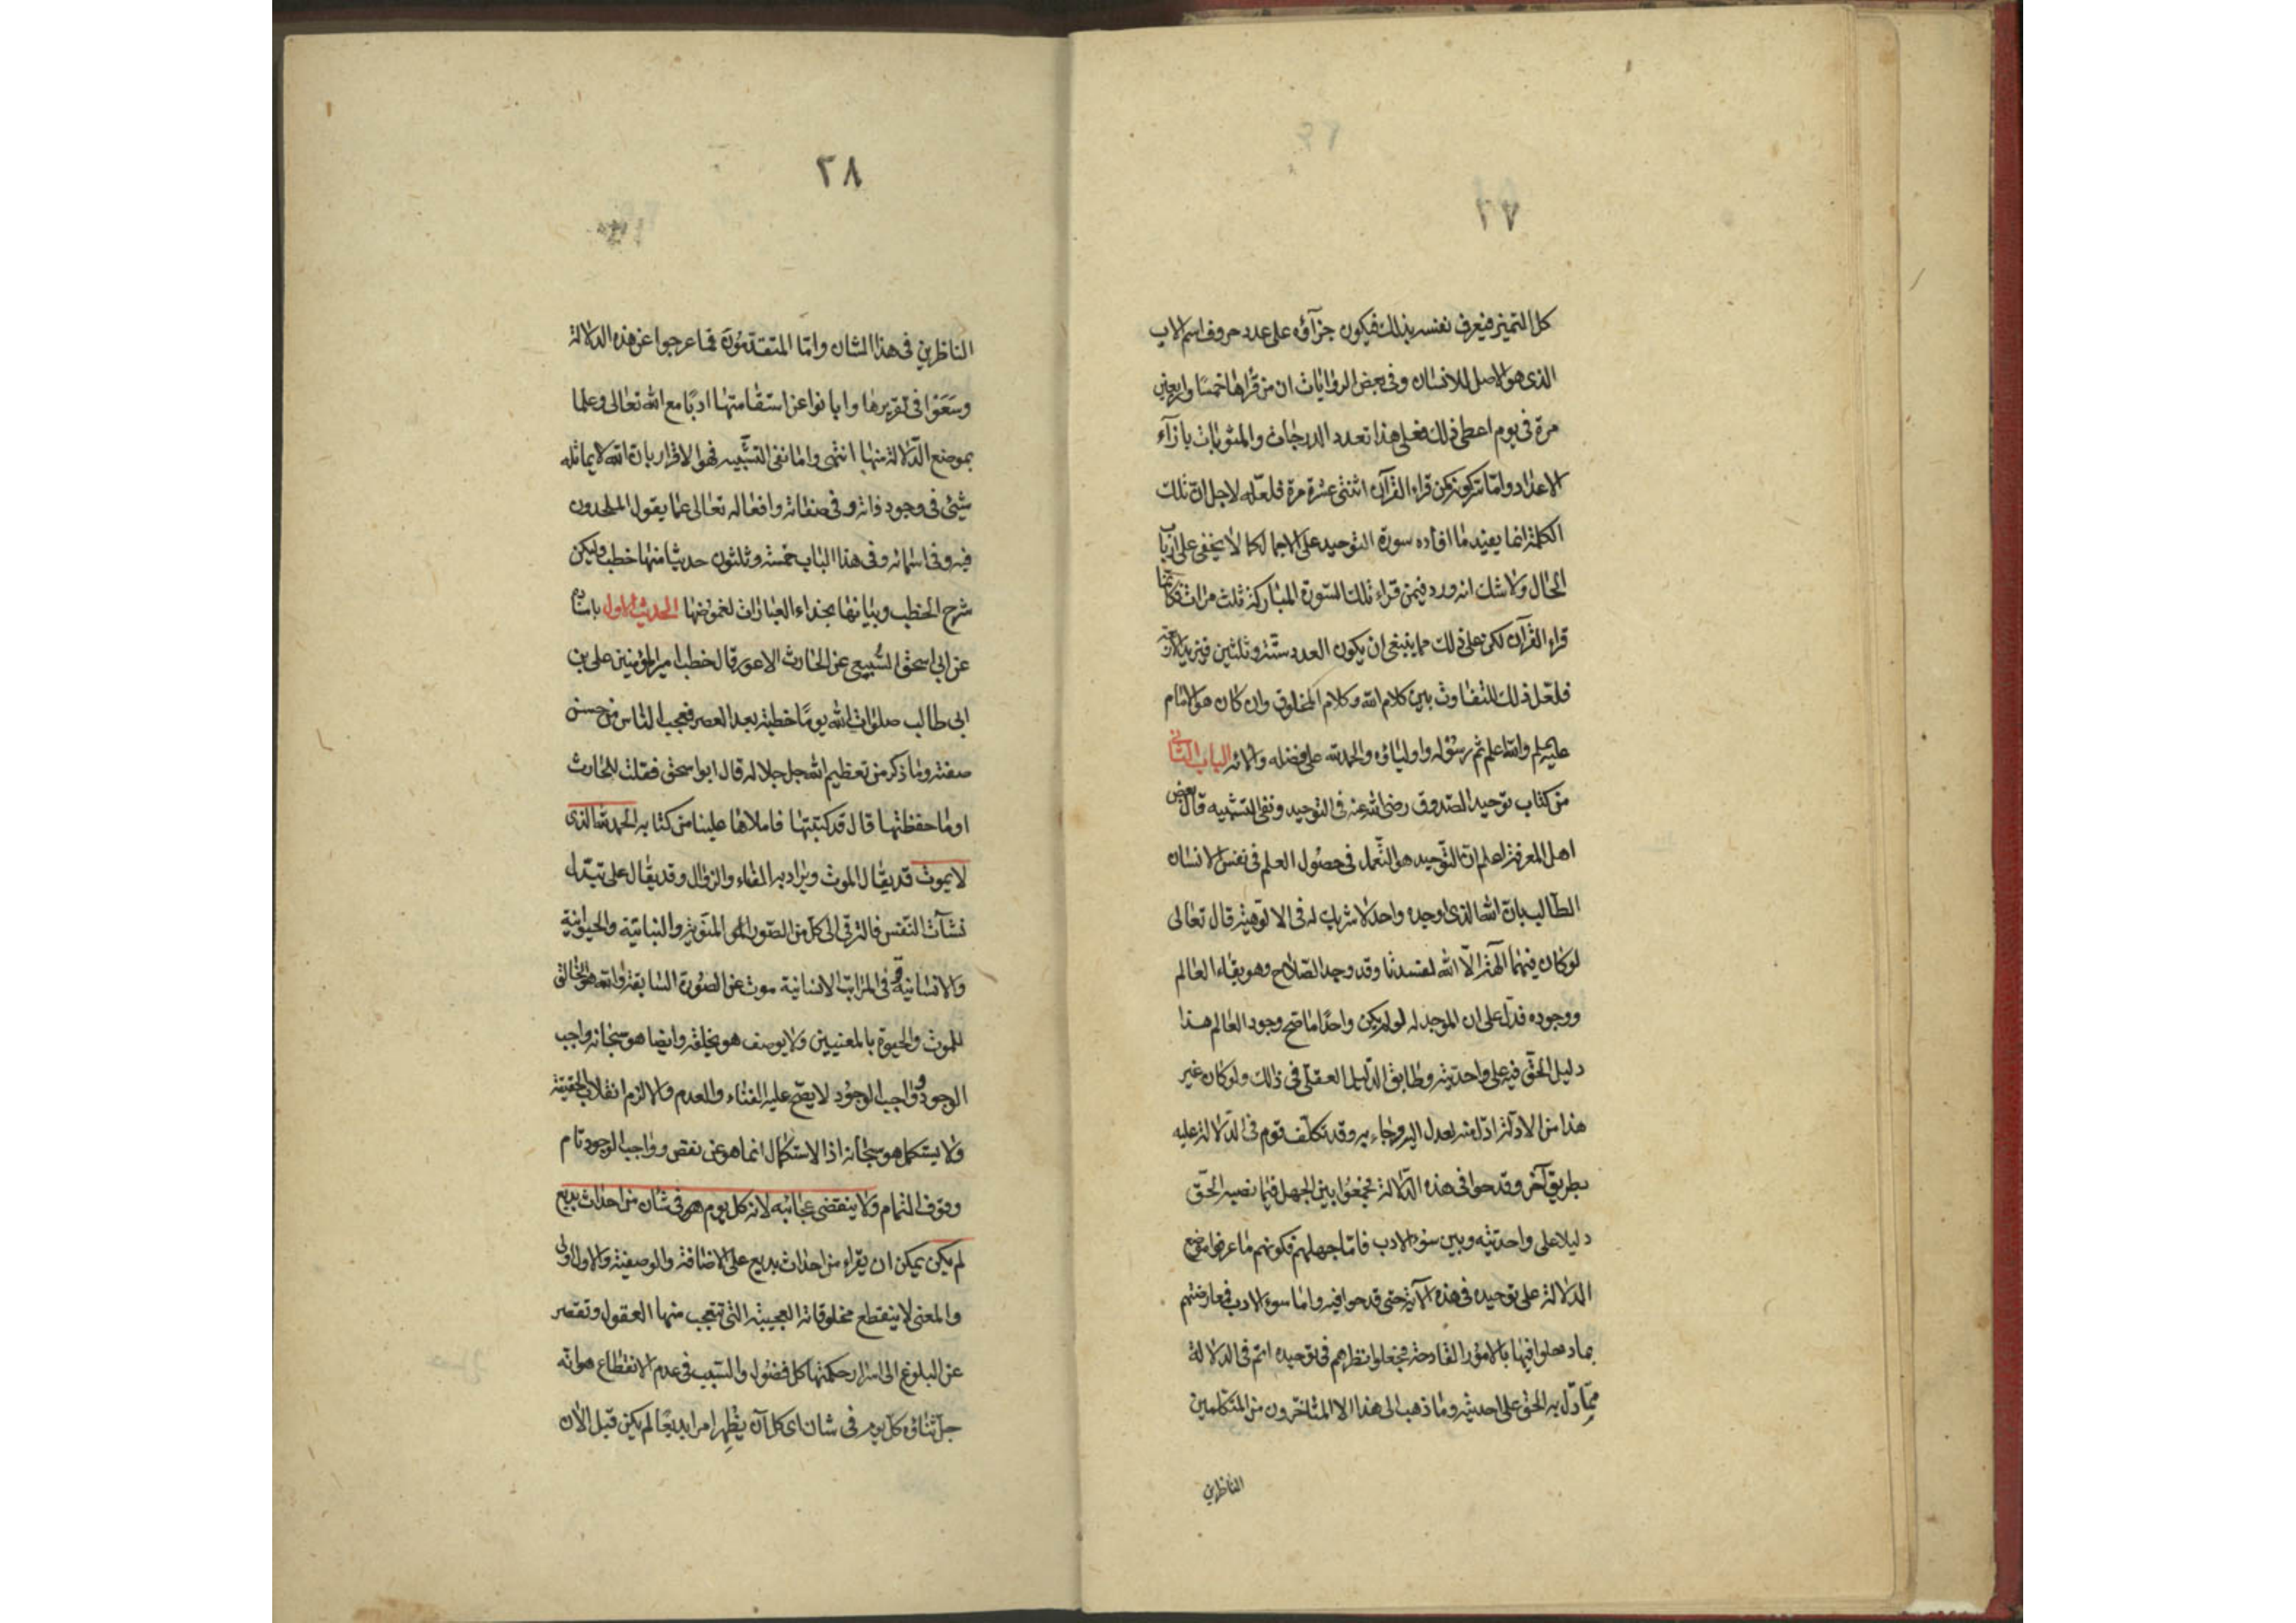 كل التميز فيعرف نفسه بذلك فيكون جزآؤه على عدد حروف اسم الاب
الذى هو الاصل للانسان وفى بعض الروايات ان من قرأها خمسًا واربعين
مرة فى يوم اعطى ذلك فعلى هذا تعدد الدرجات والمثوبات بازآء
الاعداد واما تركونه كمن قراء القرآن اثنتى عشرة مرة فلعله لاجل ان تلك
الكلمة انما يفيد ما افاده سورة التوحيد على الاجمال كما لا يخفى على ارباب
الحال ولا شك انه ورد فيمن قراء تلك السورة المباركة ثلث مرات فكانما
قراء القرآن لكن على ذلك مما ينبغى ان يكون العدد ستة وثلثين
فلعل ذلك للتفاوت بين كلام الله وكلام المخلوق وان كان هو الامام
عليه السلم والله اعلم ثم رسوله واولياؤه والحمد لله على فضله وآلائه الباب الثانى
من كتاب توحيد الصدوق رضى الله عنه فى التوحيد ونفى التشبيه قال بعض
اهل المعرفة اعلم ان التوحيد هو التعمل فى حصول العلم فى نفس الانسان
الطالب بان الله الذى اوجده واحد لا شريك له فى الالوهية قال تعالى
لو كان فيهما آلهة الا الله لفسدتا وقد وجد الصلاح وهو بقاء العالم
ووجوده فدل على ان الموجد له لو لم يكن واحدًا ما صح وجود العالم هذا
دليل الحق فيه على واحديته وطابق الدليل العقلى فى ذلك ولو كان غير
هذا من الادلة ادل منه لعدل اليه وجاء به وقد تكلف قوم فى الدلالة عليه
بطريق آخر وقدحوا فى هذه الدلالة فجمعوا بين الجهل فيما نصبه الحق
دليلا على واحديته وبين سوء الادب فاما جهلهم فكونهم ما عرفوا موضع
الدلالة على توحيده فى هذه الآية حتى قدحوا فيه واما سوء الادب فمعارضتهم
بما دخلوا فيها بالامور القادحة فجعلوا نظرهم فى توحيده اتم فى الدلالة
مما دل به الحق على احديته وما ذهب الى هذا الا المتاخرون من المتكلمين
الناظرين
٢٨
الناظرين فى هذا الشان واما المتقدمون فما عرجوا عن هذه الدلالة
وسعوا فى تقريرها وابانوا عن استقامتها ادبًا مع الله تعالى وعلما
بموضع الدلالة منها انتهى واما نفى التشبيه فهو الاقرار بان الله لا يماثله
شيئ فى وجود ذاته وفى صفاته وافعاله تعالى عما يقول الملحدون
فيه وفى اسمائه وفى هذا الباب خمسة وثلثون حديثا منها خطب وليكن
شرح الخطب وبيانها بحذاء العبارات لغموضها الحديث الاول باسناده
عن ابى اسحق السبيعى عن الحارث الاعور قال خطب امير المؤمنين على بن
ابى طالب صلوات الله يومًا خطبة بعد العصر فعجب الناس من حسن
صفته وما ذكر من تعظيم الله جل جلاله قال ابو اسحق فقلت للحارث
اوما حفظتها قال قد كتبتها فاملاها علينا من كتابه الحمد لله الذى
لا يموت قد يقال الموت ويراد به الفناء والزوال وقد يقال على تبدل
نشآت النفس فالترقى الى كل من الصور المنوية والنباتية والحيوانية
والانسانية فى المراتب الانسانية موت عن الصورة السابقة والله هو الخالق
للموت والحيوة بالمعنيين ولا يوصف هو بخلقه وايضا هو سبحانه واجب
الوجود وواجب الوجود لا يصح عليه الفناء والعدم والا لزم انقلاب الحقيقة
ولا يستكمل هو سبحانه اذ الاستكمال انما هو عن نقص وواجب الوجود تام
وفوق التمام ولا ينقضى عجائبه لانه كل يوم هو فى شان من احداث بديع
لم يكن يمكن ان يقراء من احداث بديع على الاضافة والوصفية والاول اولى
والمعنى لا ينقطع مخلوقاته العجيبة التى تتعجب منها العقول وتقصر
عن البلوغ الى اسرار حكمتها كل فضول والسبب فى عدم الانقطاع هو انه
جل ثناؤه كل يوم فى شان اى كل آن يظهر امرا بديعًا لم يكن قبل الآن